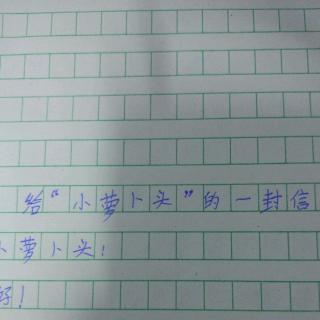 给“小萝卜头”的一封信
小萝卜头！
好！